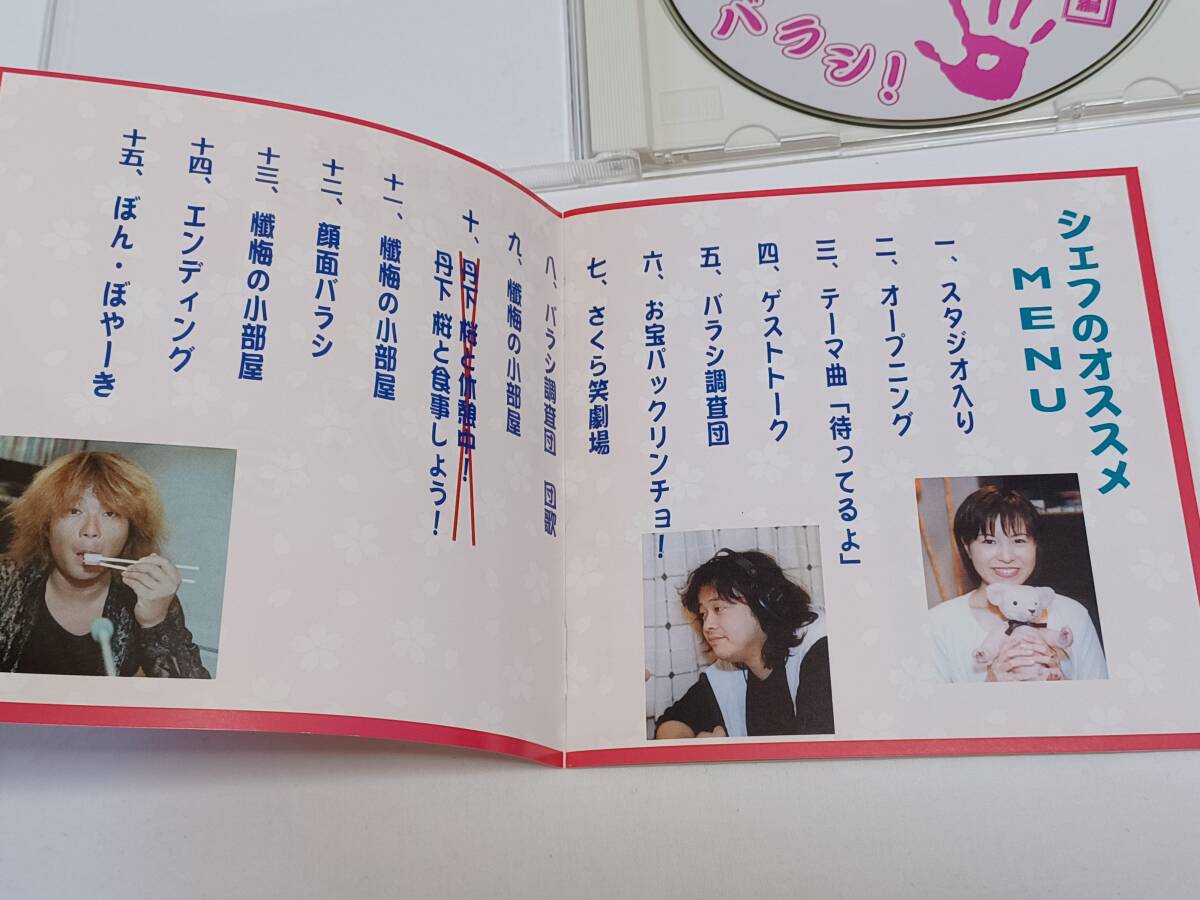 バラシ!
編
シェフのオススメ
MENU
一、スタジオ入り
二、オープニング
三、テーマ曲「待ってるよ」
四、ゲストトーク
五、バラシ調査団
六、お宝パックリンチョ!
七、さくら笑劇場
八、バラシ調査団 団歌
九、懺悔の小部屋
十、丹下 桜と休憩中!
丹下 桜と食事しよう!
十一、懺悔の小部屋
十二、顔面バラシ
十三、懺悔の小部屋
十四、エンディング
十五、ぼん・ぼやーき